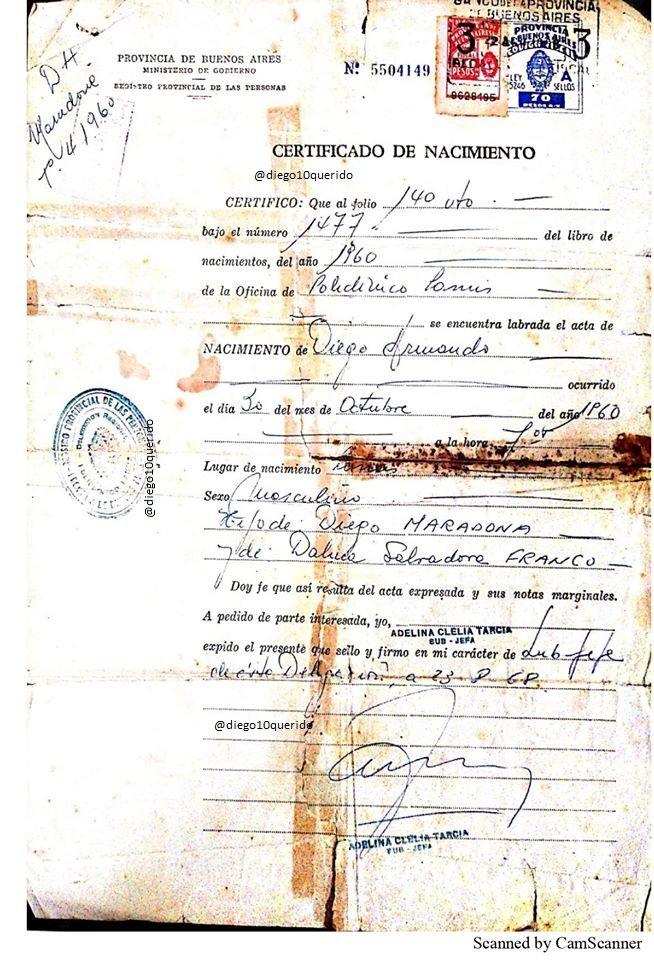 D A
Maradona
p. 4 1960
PROVINCIA DE BUENOS AIRES
MINISTERIO DE GOBIERNO
REGISTRO PROVINCIAL DE LAS PERSONAS
Nº 5504149
BANCO DE LA PROVINCIA
DE BUENOS AIRES
3
3
PESOS
9628495
PROVINCIA
BUENOS AIRES
CODIGO FISCAL
LEY
5246
A
SELLOS
70
CERTIFICADO DE NACIMIENTO
@diego10querido
CERTIFICO: Que al folio 140 vto.
bajo el número 1477 del libro de
nacimientos, del año 1960
de la Oficina de Policlínico Lanús
se encuentra labrada el acta de
NACIMIENTO de Diego Armando
ocurrido
el día 30 del mes de Octubre del año 1960
a la hora 7,05
Lugar de nacimiento Lanús
Sexo Masculino
Hijo de: Diego MARADONA
y de: Dalma Salvadora FRANCO
Doy fe que así resulta del acta expresada y sus notas marginales.
A pedido de parte interesada, yo,
ADELINA CLELIA TARCIA
SUB - JEFA
expido el presente que sello y firmo en mi carácter de Sub-jefe
de esta Delegación, a 23-8-68
@diego10querido
ADELINA CLELIA TARCIA
SUB - JEFA
REGISTRO PROVINCIAL DE LAS PERSONAS
@diego10querido
Scanned by CamScanner